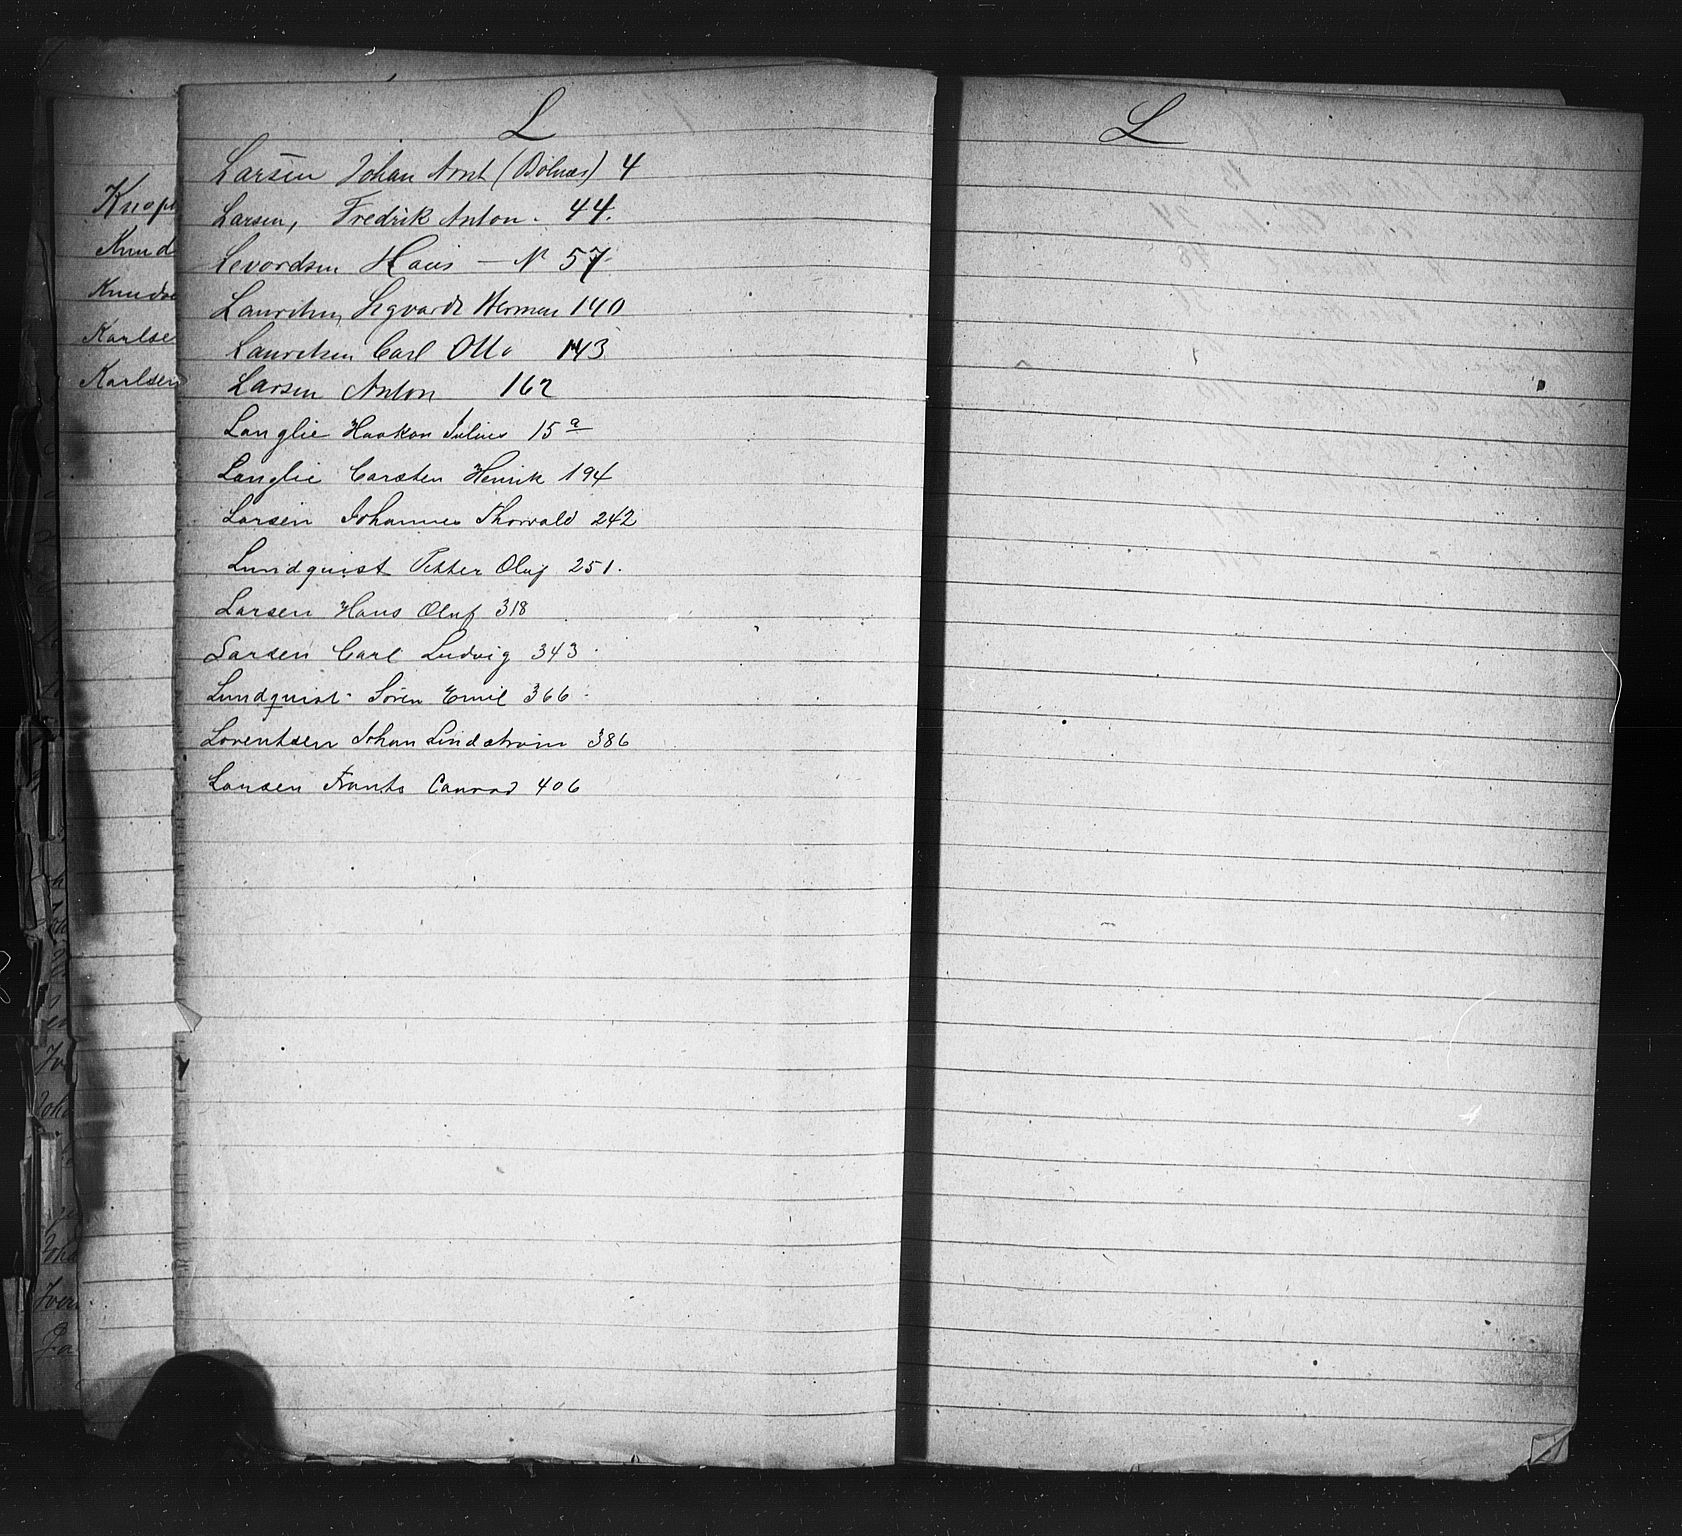 L
Larsen Johan Arnt (Bolnæs) 4
Larsen, Fredrik Anton. 44.
Levordsen Hans — N 57
Lauritsen, Sigvardt Herman 140
Lauretsen Carl Otto 143
Larsen Anton 162
Langlie Haakon Julius 15 a
Langlie Carsten Henrik 194
Larsen Johannes Thorvald 242
Lundquist Petter Oluf 251.
Larsen Hans Oluf 318
Larsen Carl Ludvig 343
Lundquist Søren Emil 366
Lorentsen Johan Lindstrøm 386
Larsen Frants Conrad 406
L
Knop
Knud
Knuds
Karlse
Karlsen